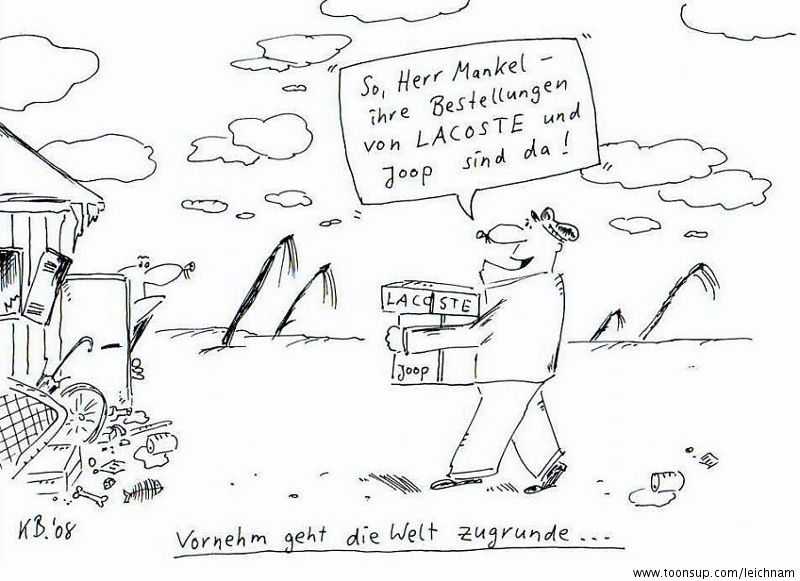 "So, Herr Mankel –
ihre Bestellungen
von LACOSTE und
Joop sind da!"
LACOSTE
Joop
KB.'08
Vornehm geht die Welt zugrunde...
www.toonsup.com/leichnam